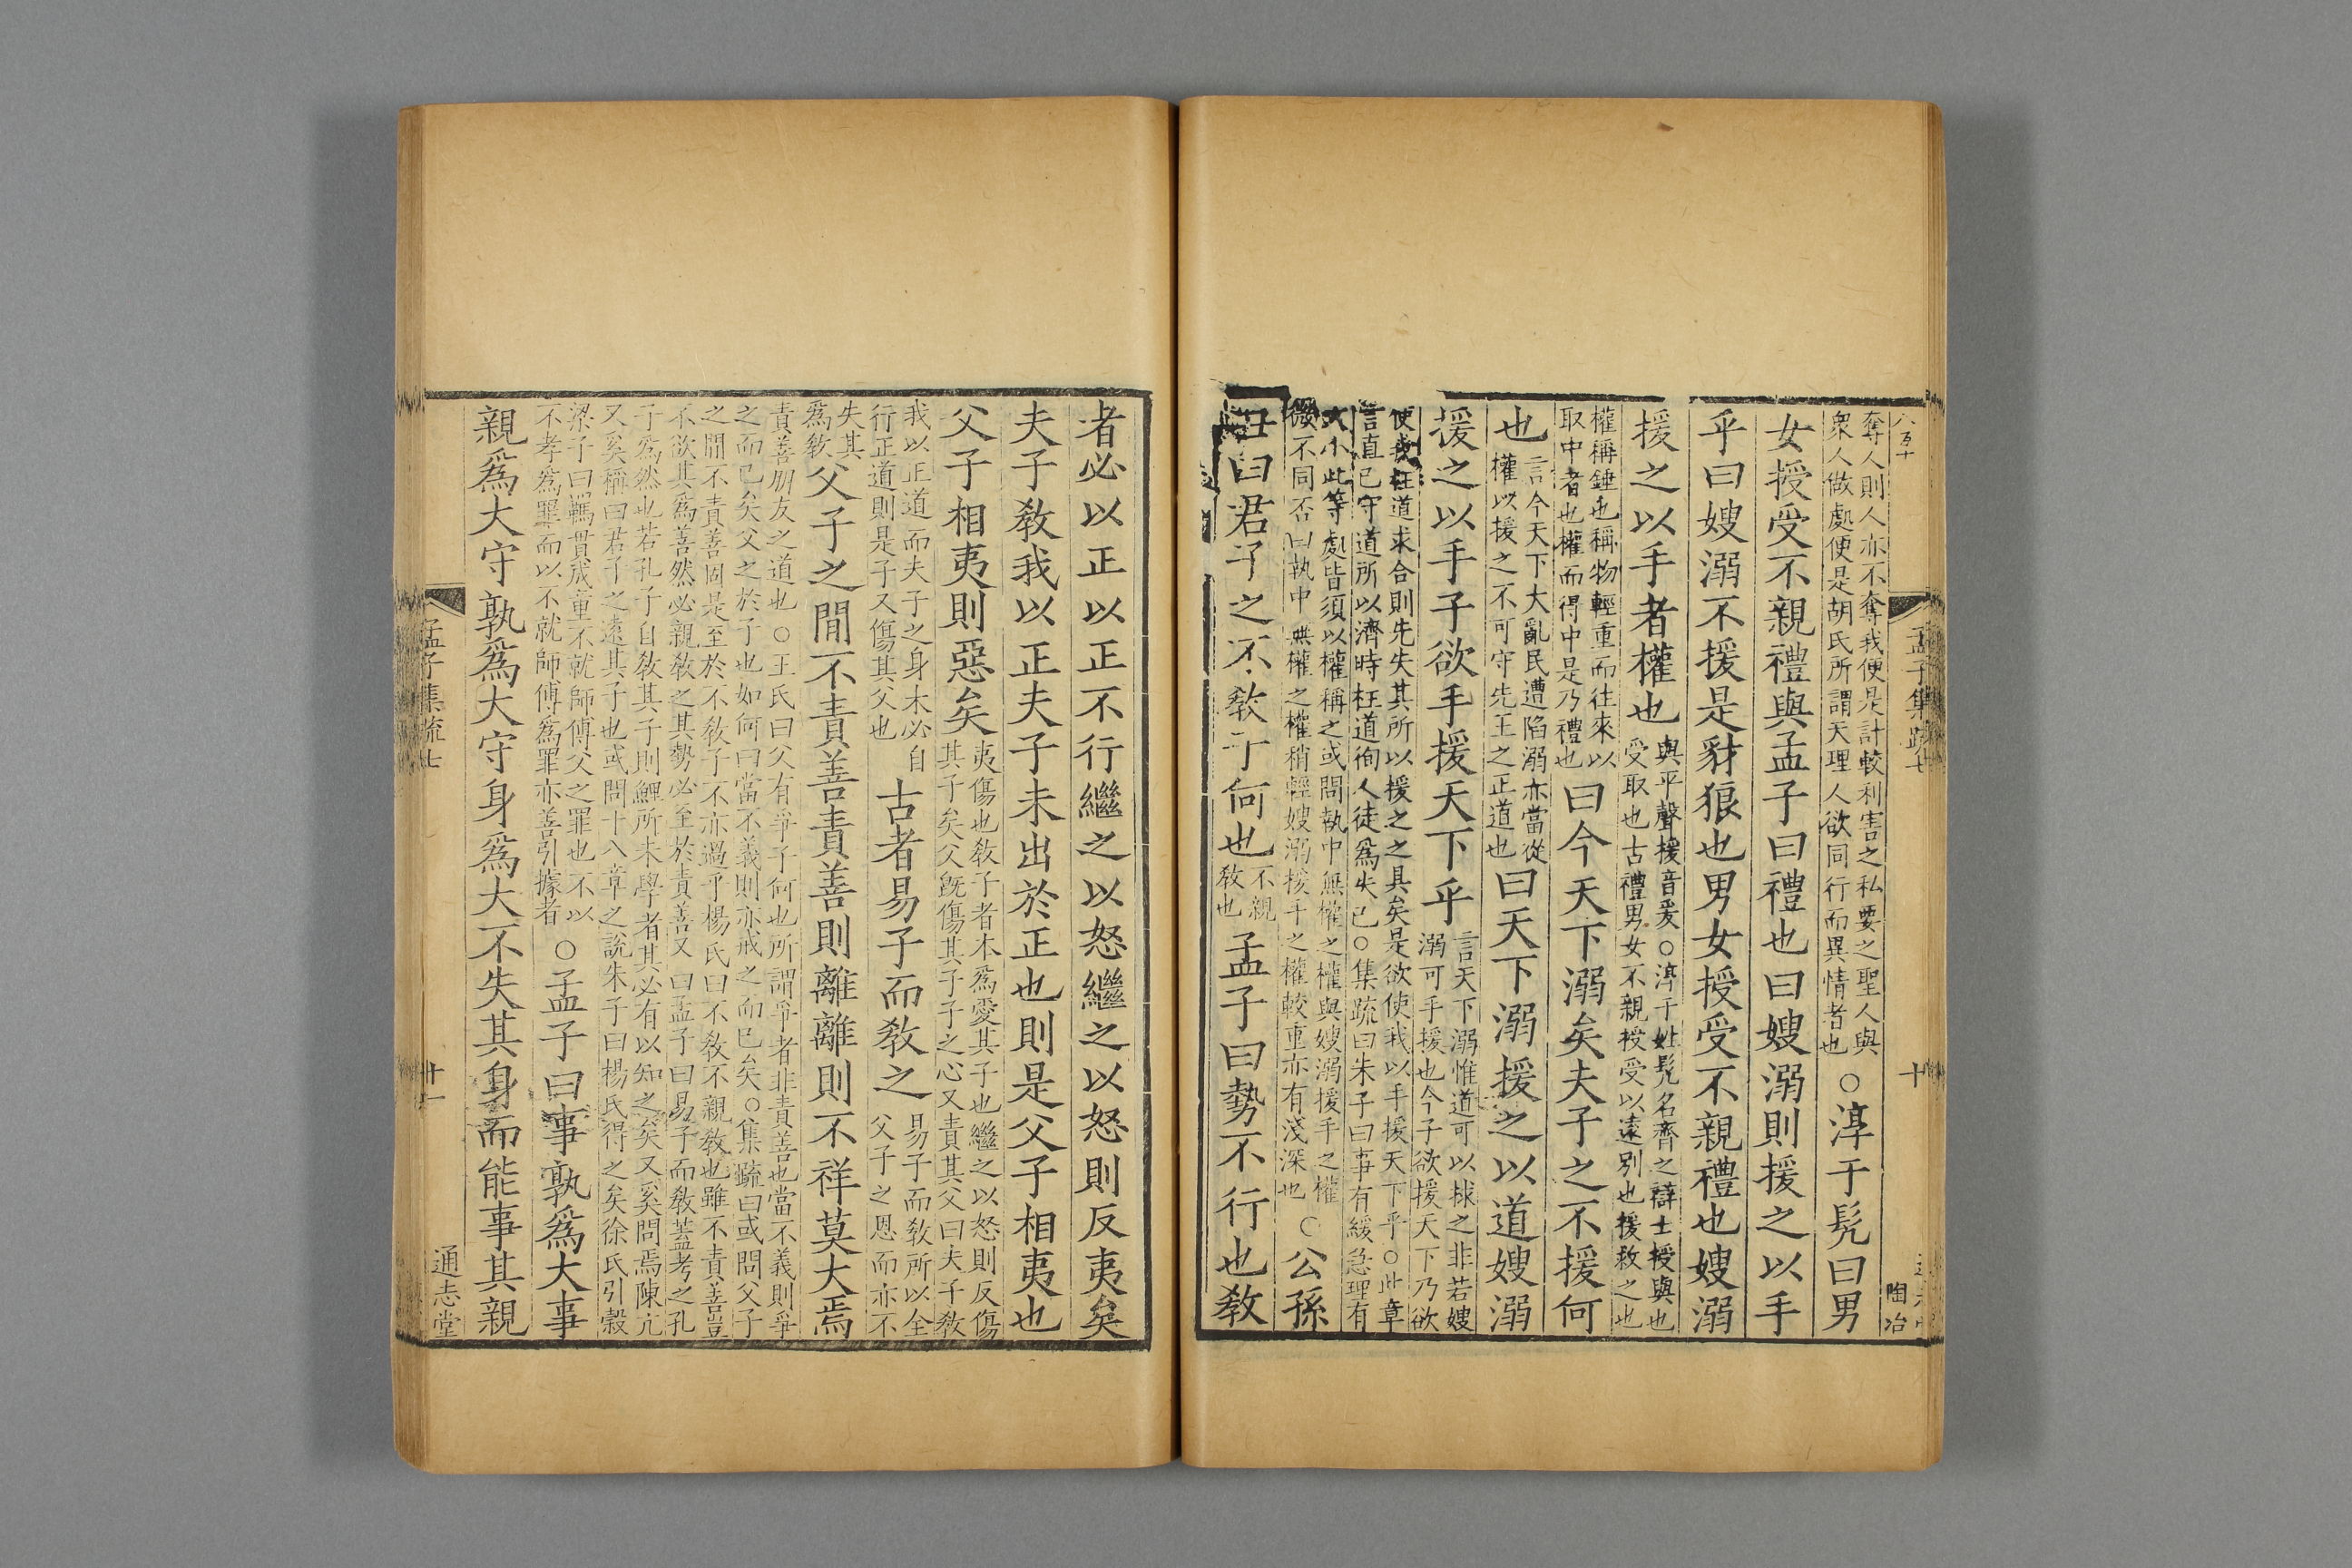 孟子集疏七 十 陶冶
奪人則人亦不奪我便是計較利害之私要之聖人與衆人做處便是胡氏所謂天理人欲同行而異情者也○淳于髠曰男
女授受不親禮與孟子曰禮也曰嫂溺則援之以手
乎曰嫂溺不援是豺狼也男女授受不親禮也嫂溺
援之以手者權也與平聲援音爰○淳于姓髠名齊之辯士授與也受取也古禮男女不親授受以遠别也援救之也
權稱錘也稱物輕重而往來以取中者也權而得中是乃禮也曰今天下溺矣夫子之不援何
也言今天下大亂民遭陷溺亦當從權以援之不可守先王之正道也曰天下溺援之以道嫂溺
援之以手子欲手援天下乎言天下溺惟道可以捄之非若嫂溺可手援也今子欲援天下乃欲
使我枉道求合則先失其所以援之之具矣是欲使我以手援天下乎○此章言直已守道所以濟時枉道徇人徒爲失已○集疏曰朱子曰事有緩急理有
大小此等處皆須以權稱之或問執中無權之權與嫂溺援手之權微不同否曰執中無權之權稍輕嫂溺援手之權較重亦有淺深也○公孫
丑曰君子之不敎子何也不親敎也孟子曰勢不行也敎
者必以正以正不行繼之以怒繼之以怒則反夷矣
夫子敎我以正夫子未出於正也則是父子相夷也
父子相夷則惡矣夷傷也敎子者本爲愛其子也繼之以怒則反傷其子矣父旣傷其子子之心又責其父曰夫子敎
我以正道而夫子之身未必自行正道則是子又傷其父也古者易子而敎之易子而敎所以全父子之恩而亦不
失其爲敎父子之閒不責善責善則離離則不祥莫大焉
責善朋友之道也○王氏曰父有爭子何也所謂爭者非責善也當不義則爭之而已矣父之於子也如何曰當不義則亦戒之而已矣○集疏曰或問父子
之閒不責善固是至於不敎子不亦過乎楊氏曰不敎不親敎也雖不責善豈不欲其爲善然必親敎之其勢必至於責善又曰孟子曰易子而敎葢考之孔
子爲然也若孔子自敎其子則鯉所未學者其必有以知之矣又奚問焉陳亢又奚稱曰君子之遠其子也或問十八章之說朱子曰楊氏得之矣徐氏引糓
梁子曰羈貫成童不就師傅父之罪也不以不孝爲罪而以不就師傅爲罪亦善引據者○孟子曰事孰爲大事
親爲大守孰爲大守身爲大不失其身而能事其親
孟子集疏七 十一 通志堂